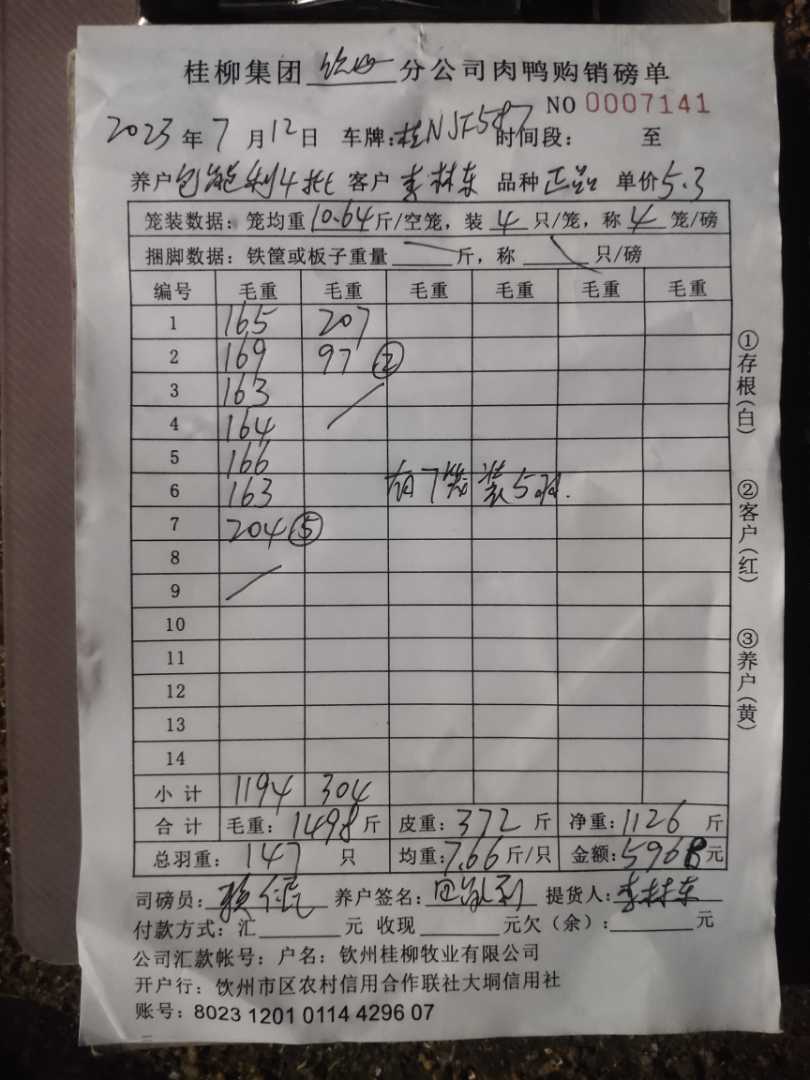 桂柳集团 钦州 分公司肉鸭购销磅单
NO 0007141
2023 年 7 月 12 日 车牌: 桂NJF587 时间段: 至
养户 利4批 客户 李林东 品种 正品 单价 5.3
笼装数据: 笼均重 10.64 斤/空笼, 装 4 只/笼, 称 4 笼/磅
捆脚数据: 铁筐或板子重量 斤, 称 只/磅
编号 毛重 毛重 毛重 毛重 毛重 毛重
1 165 207
2 169 97 ②
3 163
4 164
5 166
6 163 有7笼装5羽.
7 204 ⑤
8
9
10
11
12
13
14
小计 1194 304
合计 毛重: 1498 斤 皮重: 372 斤 净重: 1126 斤
总羽重: 147 只 均重: 7.66 斤/只 金额: 5968 元
司磅员: 养户签名: 提货人: 李林东
付款方式: 汇 元 收现 元欠(余): 元
公司汇款帐号: 户名: 钦州桂柳牧业有限公司
开户行: 钦州市区农村信用合作联社大垌信用社
账号: 8023 1201 0114 4296 07
①存根(白)
②客户(红)
③养户(黄)